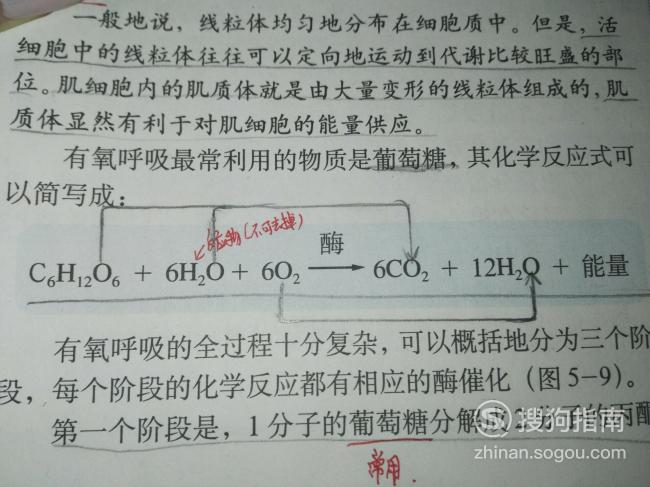 一般地说，线粒体均匀地分布在细胞质中。但是，活
细胞中的线粒体往往可以定向地运动到代谢比较旺盛的部
位。肌细胞内的肌质体就是由大量变形的线粒体组成的，肌
质体显然有利于对肌细胞的能量供应。
有氧呼吸最常利用的物质是葡萄糖，其化学反应式可
以简写成：
反应物(不可去掉)
酶
C₆H₁₂O₆ + 6H₂O + 6O₂ → 6CO₂ + 12H₂O + 能量
有氧呼吸的全过程十分复杂，可以概括地分为三个阶
段，每个阶段的化学反应都有相应的酶催化（图5-9）。
第一个阶段是，1分子的葡萄糖分解成2分子的丙酮
常用.
搜狗指南
zhinan.sogou.com